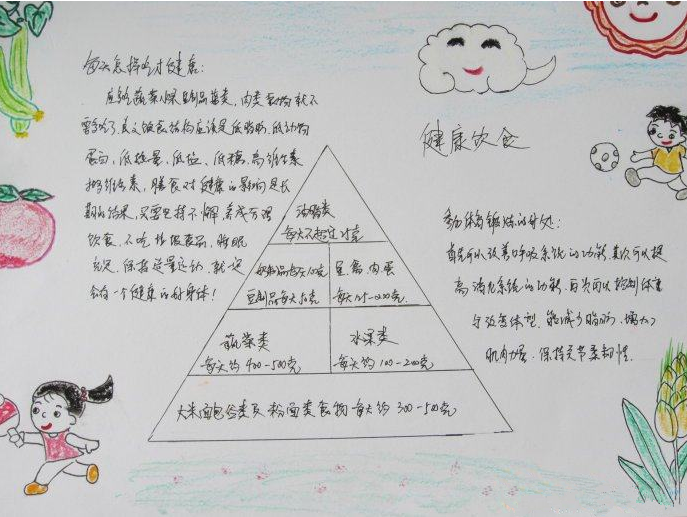 每天怎样吃才健康:
应该吃蔬菜水果豆制品菌类，肉类食物就不
低脂肪，低动物
蛋白，低热量，低盐、低糖，高维生素
膳食对健康的影响是长
期的结果，需要坚持不懈，养成合理
饮食，不吃垃圾食品，睡眠
充足，保持适量运动，就一定
会有一个健康的好身体！
健康饮食
油脂类
每天不超过
豆制品每天50克
鱼禽，肉，蛋
蔬菜类
每天约400-500克
水果类
每天约100-200克
大米面包谷类及粉面类食物每天约300-500克
体育锻炼的好处:
首先可以改善呼吸系统的功能，其次可以提
高消化系统的功能，再次可以控制体重
与改善体型，能减少脂肪，增大
肌肉力量，保持关节柔韧性.